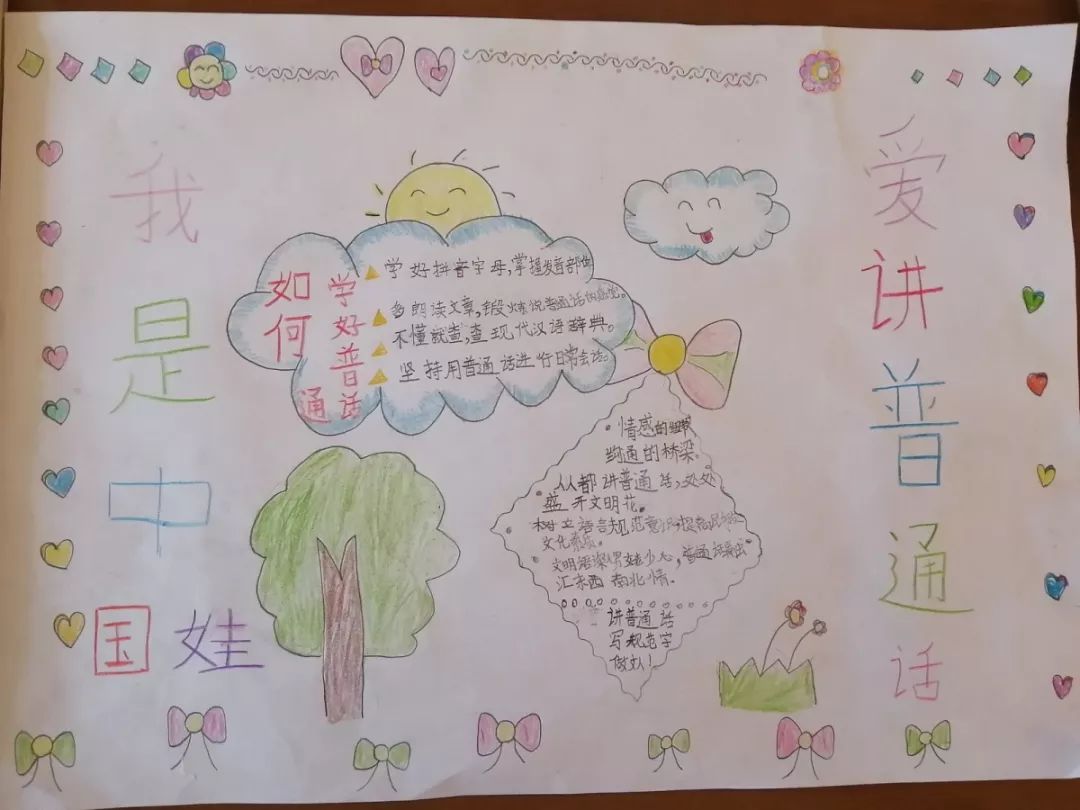 我是中国娃
爱讲普通话
如何
学好普通话
学好拼音字母,掌握发音部位
多朗读文章,锻炼说普通话的感觉。
不懂就查,查现代汉语辞典。
坚持用普通话进行日常会话。
情感的纽带
沟通的桥梁。
人人都讲普通话,处处
盛开文明花。
树立语言规范意识
文化素质。
文明语深
汇东西南北情。
讲普通话
写规范字